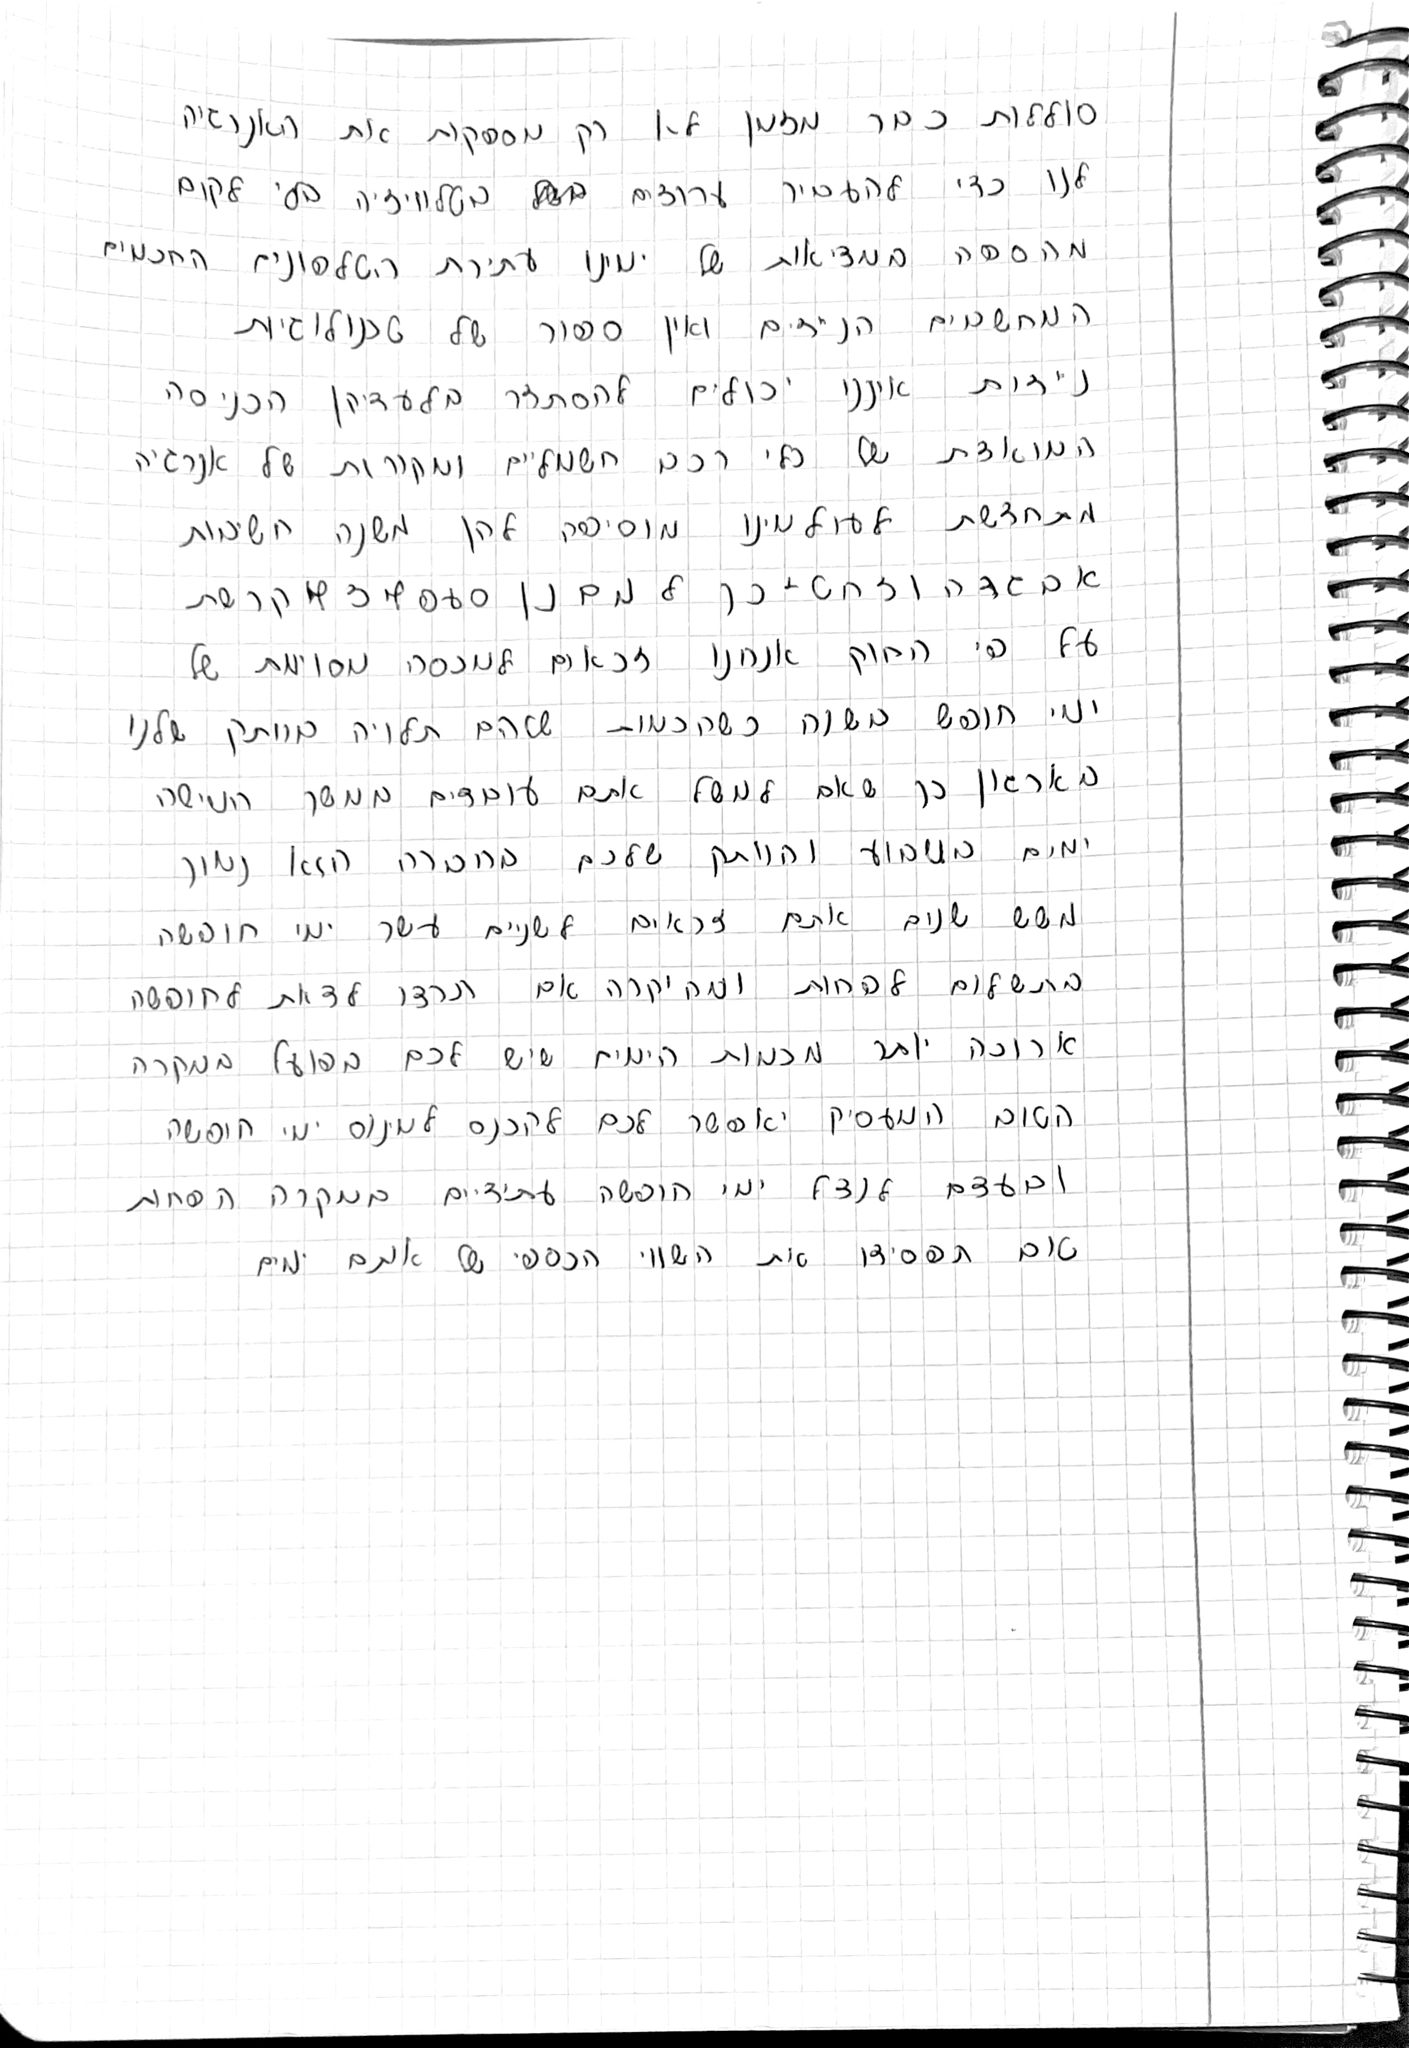 סוללות כבר מזמן לא רק מספקות את האנרגיה
לנו כדי להעביר ערוצים בטלוויזיה בלי לקום
מהספה במציאות של ימינו עתירת הטלפונים החכמים
המחשבים הניידים ואין ספור של טכנולוגיות
ניידות איננו יכולים להסתדר בלעדיהן הכניסה
המואצת של כלי רכב חשמליים ומקורות של אנרגיה
מתחדשת לעולמינו מוסיפה להן משנה חשיבות
א ב ג ד ה ו ז ח ט י כ ך ל מ ם נ ן ס ע פ ף צ ץ ק ר ש ת
על פי החוק אנחנו זכאים למכסה מסוימת של
ימי חופש בשנה כשהכמות שלהם תלויה בוותק שלנו
בארגון כך שאם למשל אתם עובדים במשך חמישה
ימים בשבוע והוותק שלכם בחברה הוא נמוך
משש שנים אתם זכאים לשניים עשר ימי חופשה
בתשלום לפחות ומה יקרה אם תרצו לצאת לחופשה
ארוכה יותר מכמות הימים שיש לכם בפועל במקרה
הטוב המעסיק יאפשר לכם להכנס למינוס ימי חופשה
ובעצם לנצל ימי חופשה עתידיים במקרה הפחות
טוב תפסידו את השווי הכספי של אותם ימים